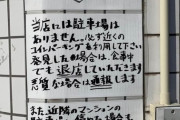 当店には駐車場は
ありません。必ず近くの
コインパーキングを利用して下さい
発見した場合は、食事中
でも退店していただきます
悪質な場合は通報します
また、近隣のマンションの